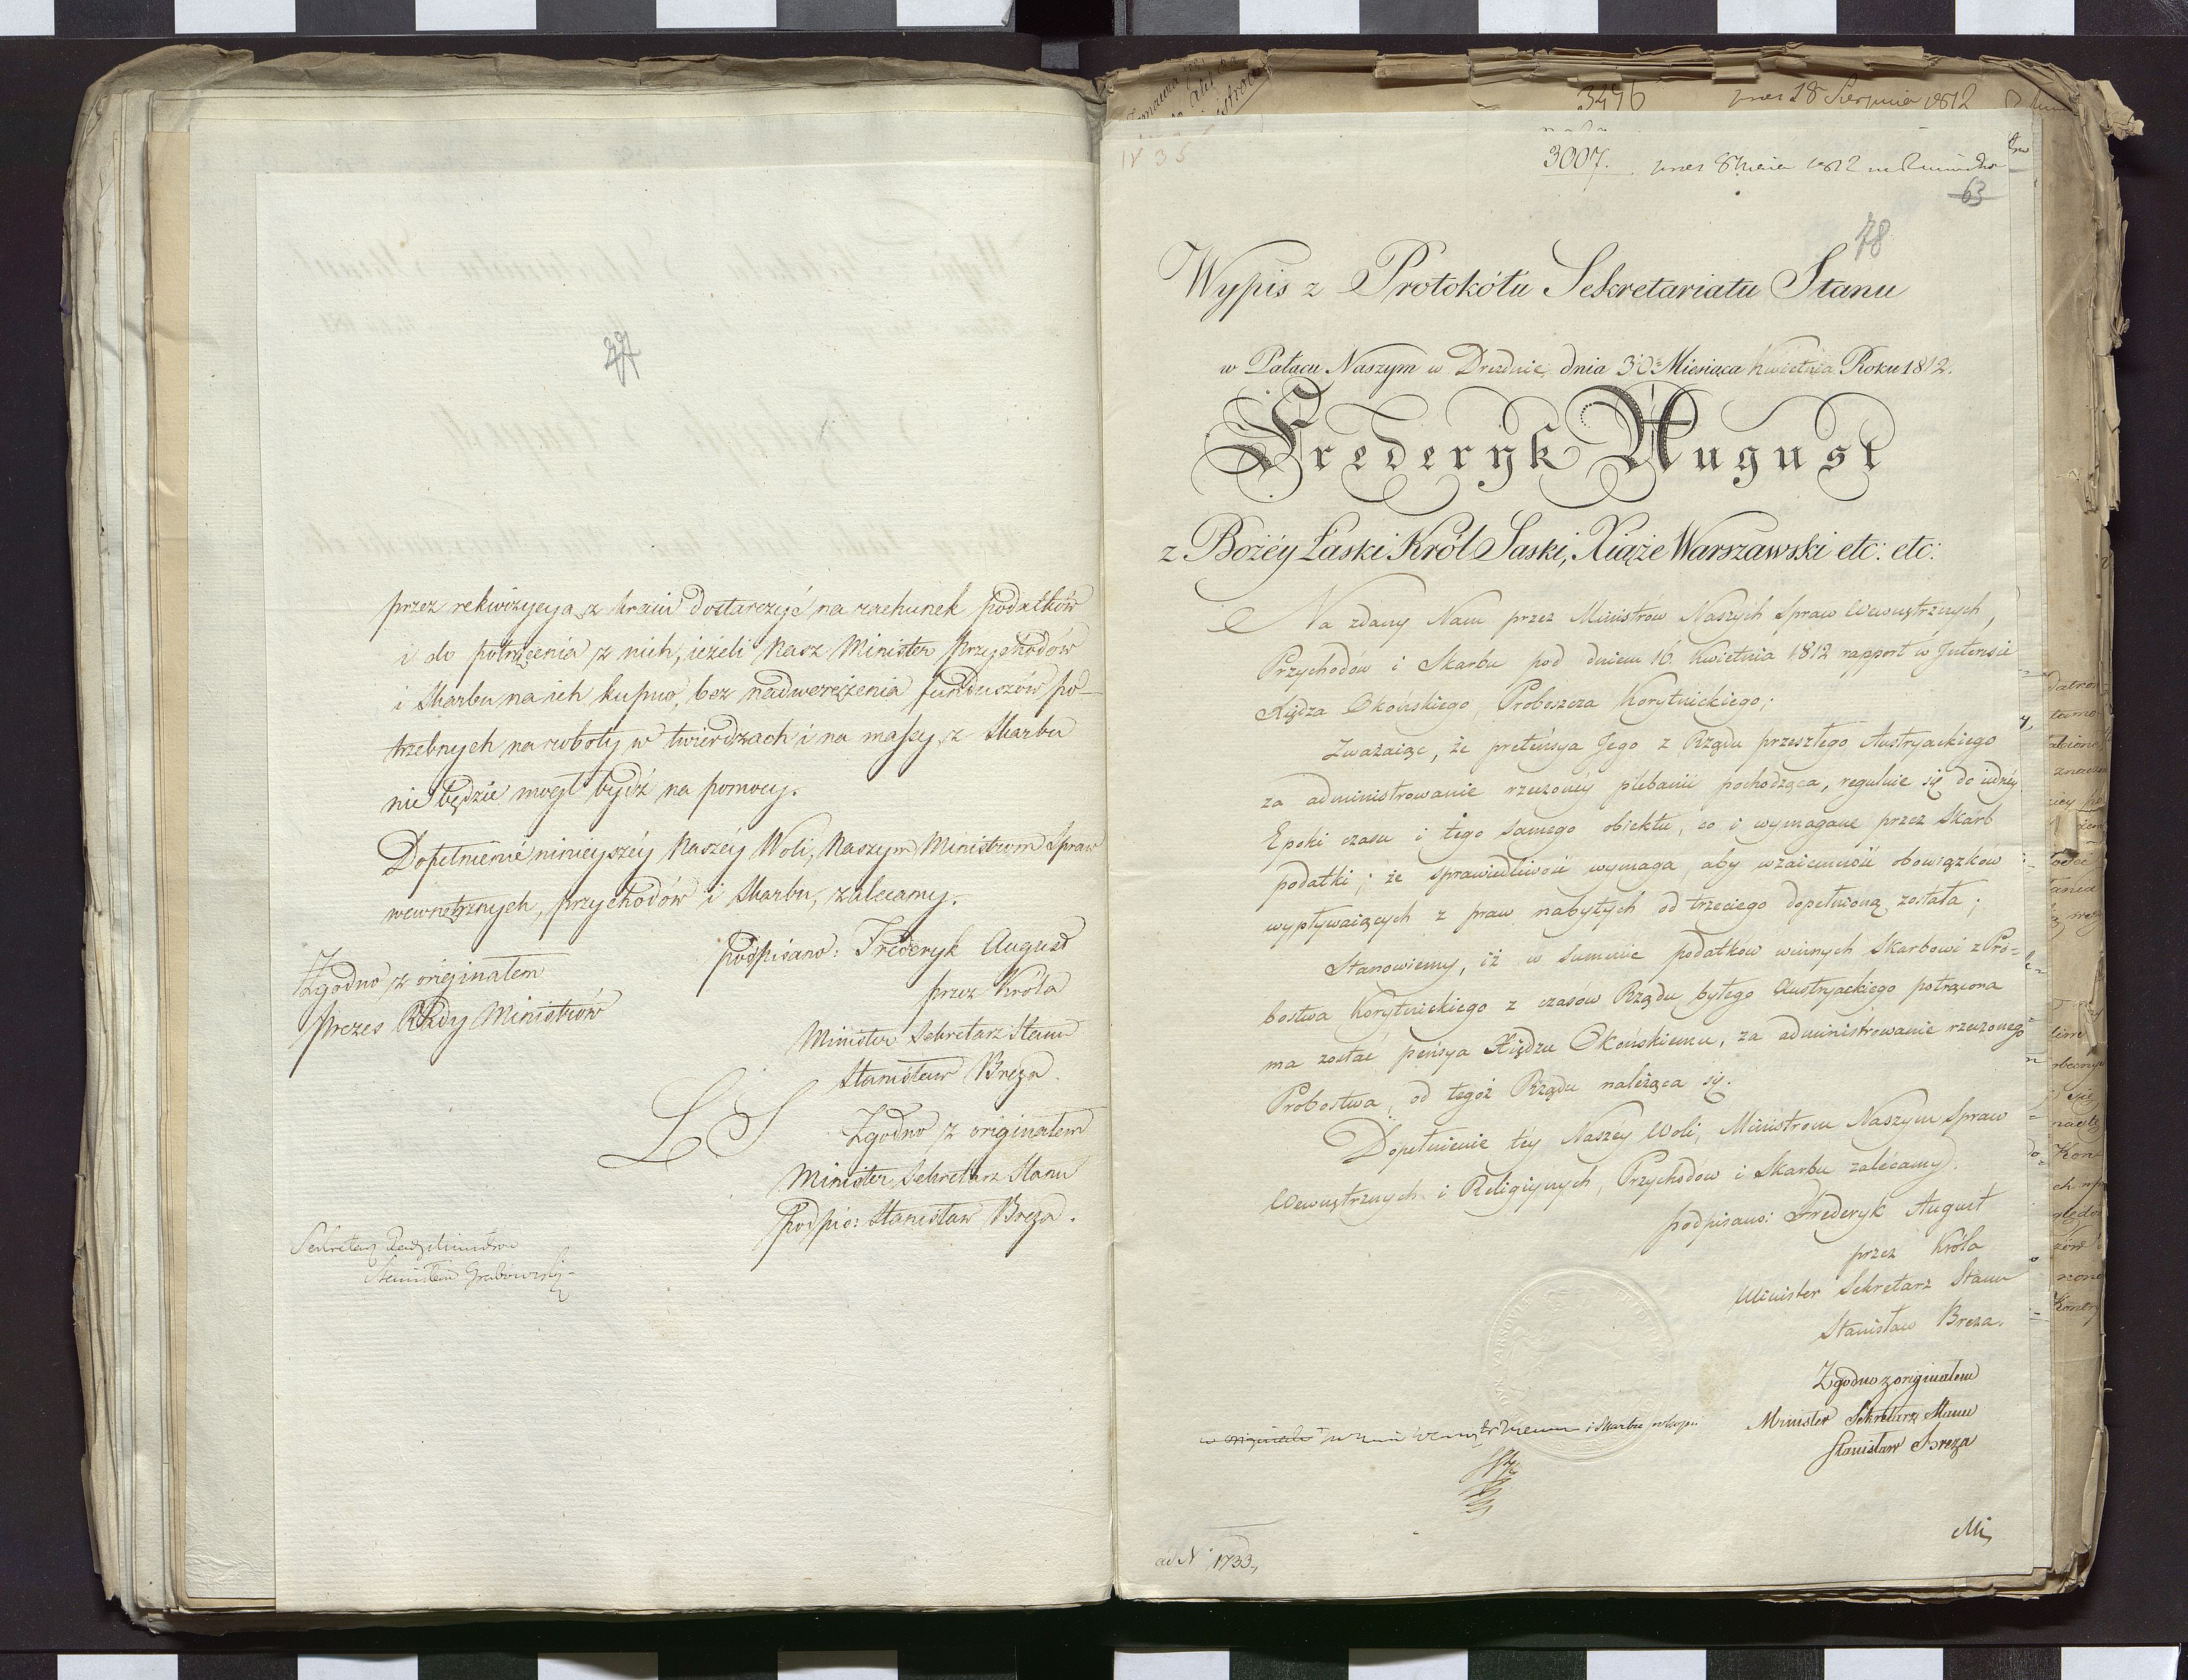 77
przez rekwizycyą z kraiu dostarczyć na rachunek podatków
i do potrącenia z nich, ieżeli Nasz Minister Przychodów
i Skarbu na ich kupno, bez nadwerężenia funduszów po-
trzebnych na roboty w twierdzach i na massy z Skarbu
nie będzie mógł bydź na pomocy.
Dopełnienié ninieyszéy Naszéy Woli, Naszym Ministrom Spraw
wewnętrznych, przychodów i Skarbu, zalecamy.
podpisano: Frederyk August
przez Króla
Minister Sekretarz Stanu
Stanisław Breza.
Zgodno z originałem
Prezes Rady Ministrów
L S
Zgodno z originałem
Minister Sekretarz Stanu
Podpis: Stanisław Breza.
Sekretarz Rady Ministrów
Stanisław Grabowski
3496 18 Sierpnia 1812
3007. 8 Maia 1812
63
78
Wypis z Protokółu Sekretariatu Stanu
w Pałacu Naszym w Dreźnie, dnia 30 Miesiąca Kwietnia Roku 1812.
Frederyk August
z Bożéy Łaski Król Saski, Xiąże Warszawski etc: etc:
Na zdany Nam przez Ministrow Naszych Spraw Wewnętrznych,
Przychodów i Skarbu pod dniem 16. Kwietnia 1812 rapport w Interesie
Xiędza Okońskiego, Proboszcza Korytnickiego;
Zważaiąc, że pretensya Jego z Rządu przeszłego Austryackiego
za administrowanie rzeczonéy plebanii pochodząca, reguluie się do iednéy
Epoki czasu i tego samego obiektu, co i wymagane przez Skarb
podatki; że sprawiedliwość wymaga, aby wzaiemność obowiązków
wypływaiących z praw nabytych od trzeciego dopełnioną została;
Stanowiemy, iż w summie podatkow winnych Skarbowi z Pro-
bostwa Korytnickiego z czasów Rządu byłego Austryackiego potrącona
ma zostać pensya Xiędzu Okońskiemu, za administrowanie rzeczonego
Probostwa, od tegóż Rządu należąca się.
Dopełnienie téy Naszéy Woli, Ministrom Naszym Spraw
Wewnętrznych i Religiynych, Przychodów i Skarbu zalécamy.
podpisano: Frederyk August
przez Króla
Minister Sekretarz Stanu
Stanisław Breza.
Zgodno z originałem
Minister Sekretarz Stanu
Stanisław Breza
i Skarbu
Mi
ad N 1733